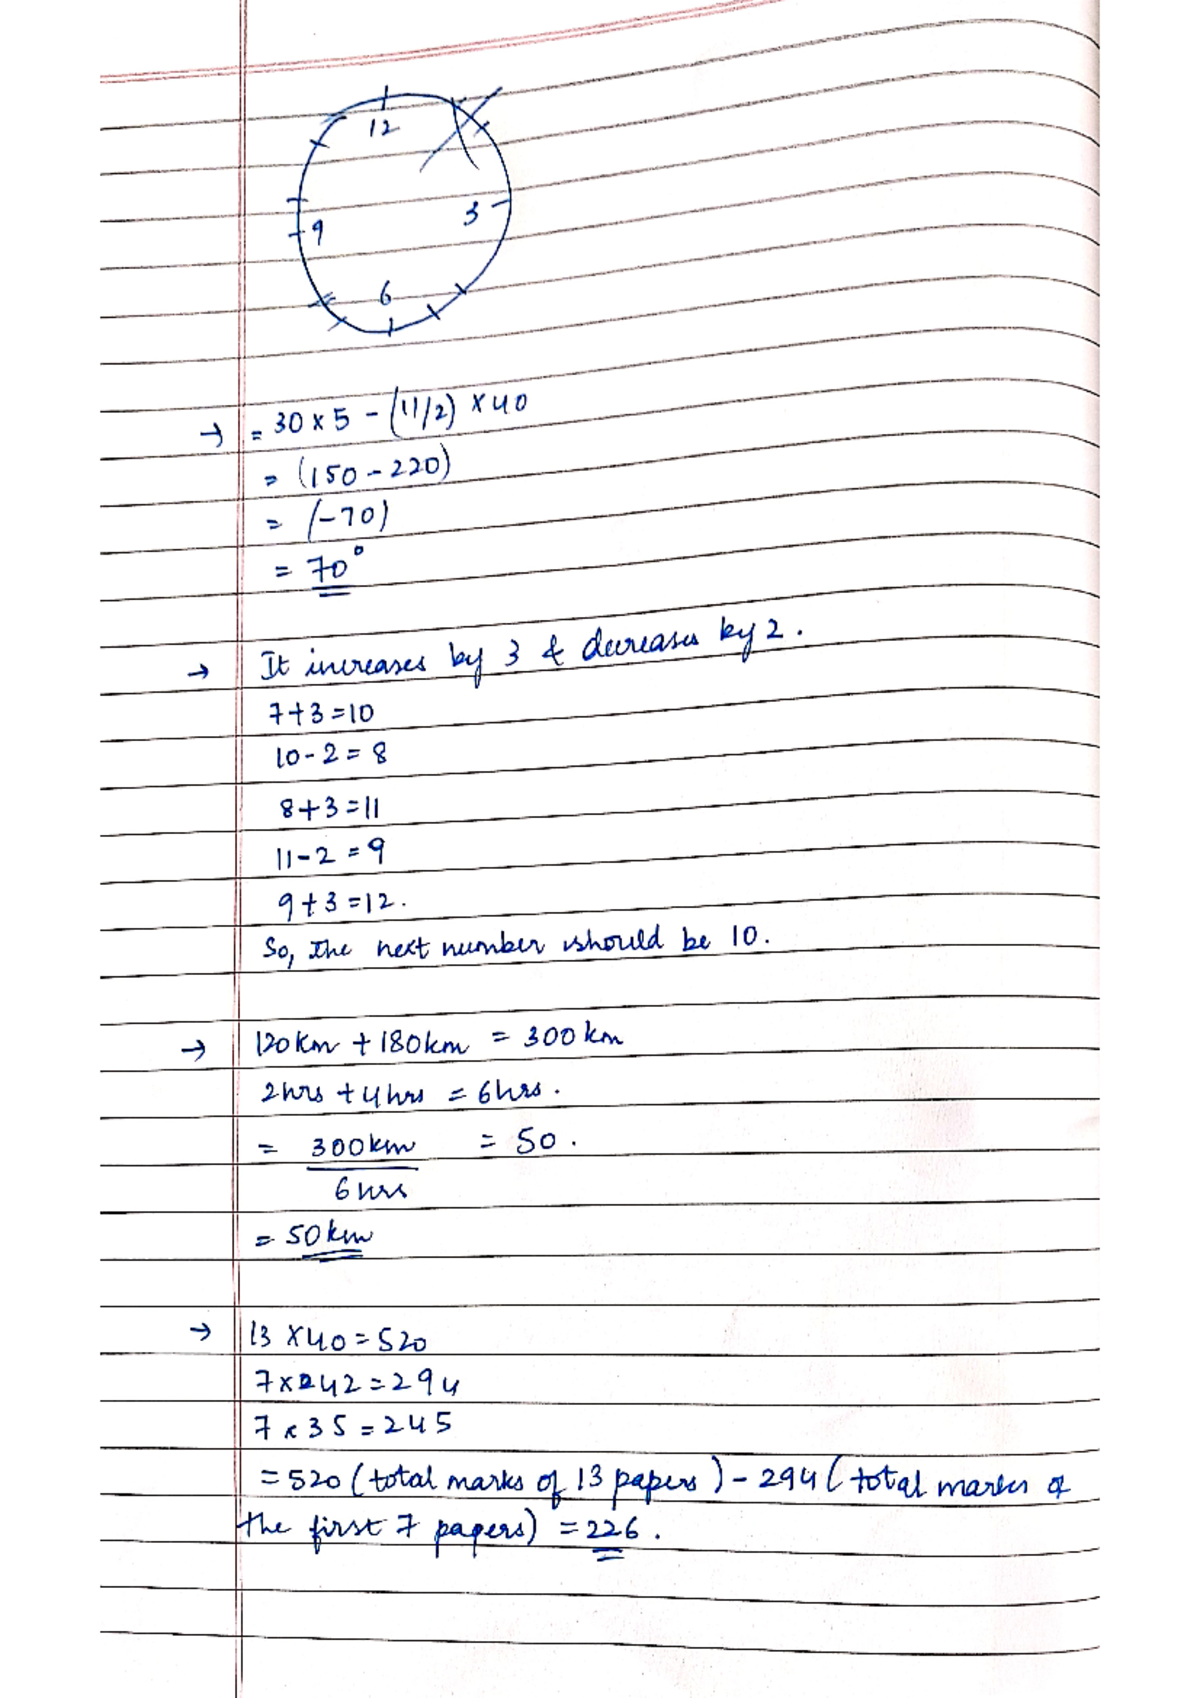 12
3
9
6
→ = 30 x 5 - (11/2) x 40
= (150 - 220)
= (-70)
= 70°
→ It increases by 3 & decreases by 2.
7+3=10
10-2=8
8+3=11
11-2=9
9+3=12.
So, the next number should be 10.
→ 120km + 180km = 300km
2hrs + 4hrs = 6hrs.
= 300km = 50.
6hrs
= 50km
→ 13 x 40 = 520
7 x 42 = 294
7 x 35 = 245
= 520 (total marks of 13 papers) - 294 (total marks of
the first 7 papers) = 226.